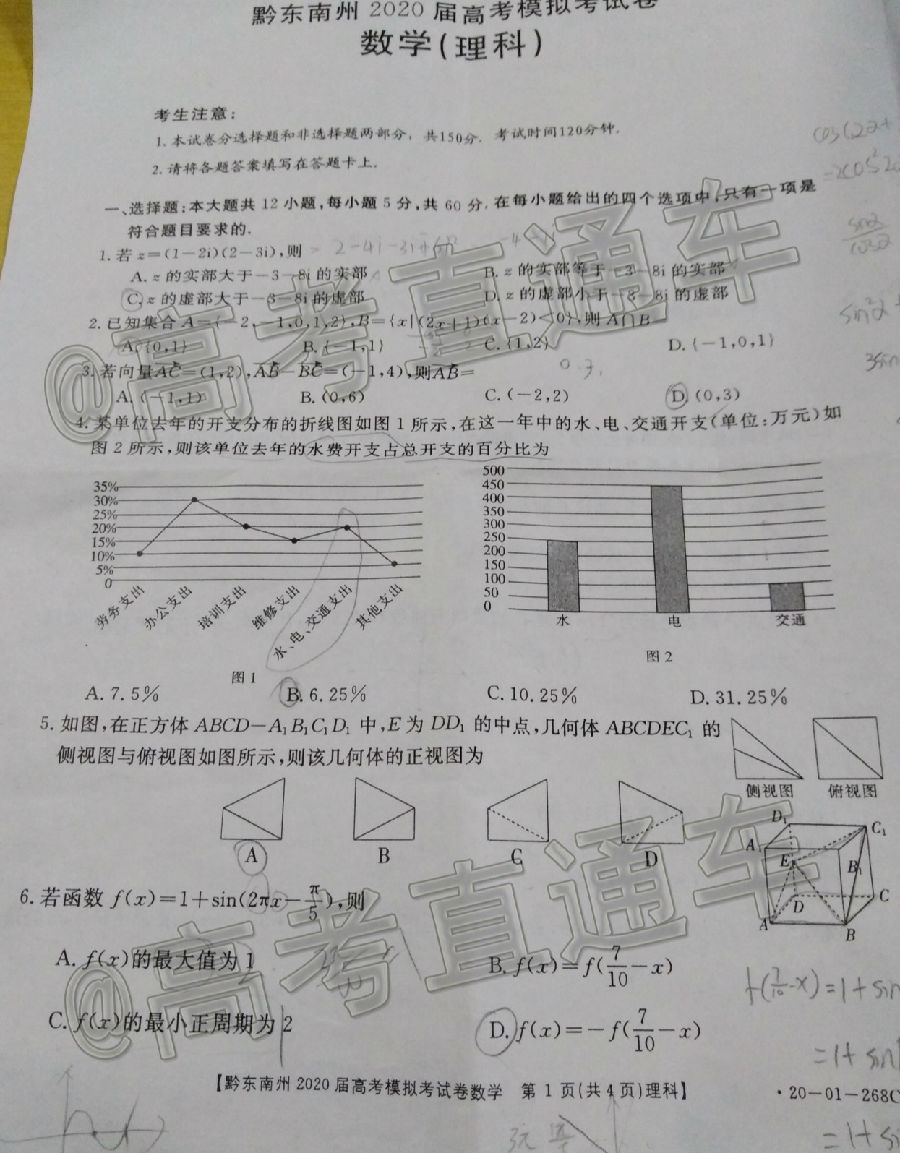 黔东南州 2020 届高考模拟考试卷
数学(理科)
考生注意:
1.本试卷分选择题和非选择题两部分,共150分.考试时间120分钟.
2.请将各题答案填写在答题卡上.
一、选择题:本大题共 12 小题,每小题 5 分,共 60 分.在每小题给出的四个选项中,只有一项是
符合题目要求的.
1.若 z=(1-2i)(2-3i),则
A.z 的实部大于-3-8i 的实部 B.z 的实部等于-3-8i 的实部
C.z 的虚部大于-3-8i 的虚部 D.z 的虚部小于-3-8i 的虚部
2.已知集合 A={-2,-1,0,1,2},B={x|(2x+1)(x-2)<0},则 A∩B=
A.{0,1} B.{-1,1} C.{1,2} D.{-1,0,1}
3.若向量AC=(1,2),AB-BC=(-1,4),则AB=
A.(-1,1) B.(0,6) C.(-2,2) D.(0,3)
4.某单位去年的开支分布的折线图如图 1 所示,在这一年中的水、电、交通开支(单位:万元)如
图 2 所示,则该单位去年的水费开支占总开支的百分比为
35%
30%
25%
20%
15%
10%
5%
0
劳务支出
办公支出
培训支出
维修支出
水、电、交通支出
其他支出
图 1
500
450
400
350
300
250
200
150
100
50
0
水 电 交通
图 2
A.7.5% B.6.25% C.10.25% D.31.25%
5.如图,在正方体 ABCD-A₁B₁C₁D₁ 中,E 为 DD₁ 的中点,几何体 ABCDEC₁ 的
侧视图与俯视图如图所示,则该几何体的正视图为
侧视图 俯视图
A B C D
D₁
C₁
A₁
B₁
E
D
C
A
B
6.若函数 f(x)=1+sin(2πx-π/5),则
A.f(x)的最大值为 1 B.f(x)=f(7/10-x)
C.f(x)的最小正周期为 2 D.f(x)=-f(7/10-x)
f(7/10-x)=1+sin
=1+sin
=1+si
【黔东南州 2020 届高考模拟考试卷数学 第 1 页(共 4 页)理科】
·20-01-268C
@高考直通车
@高考直通车